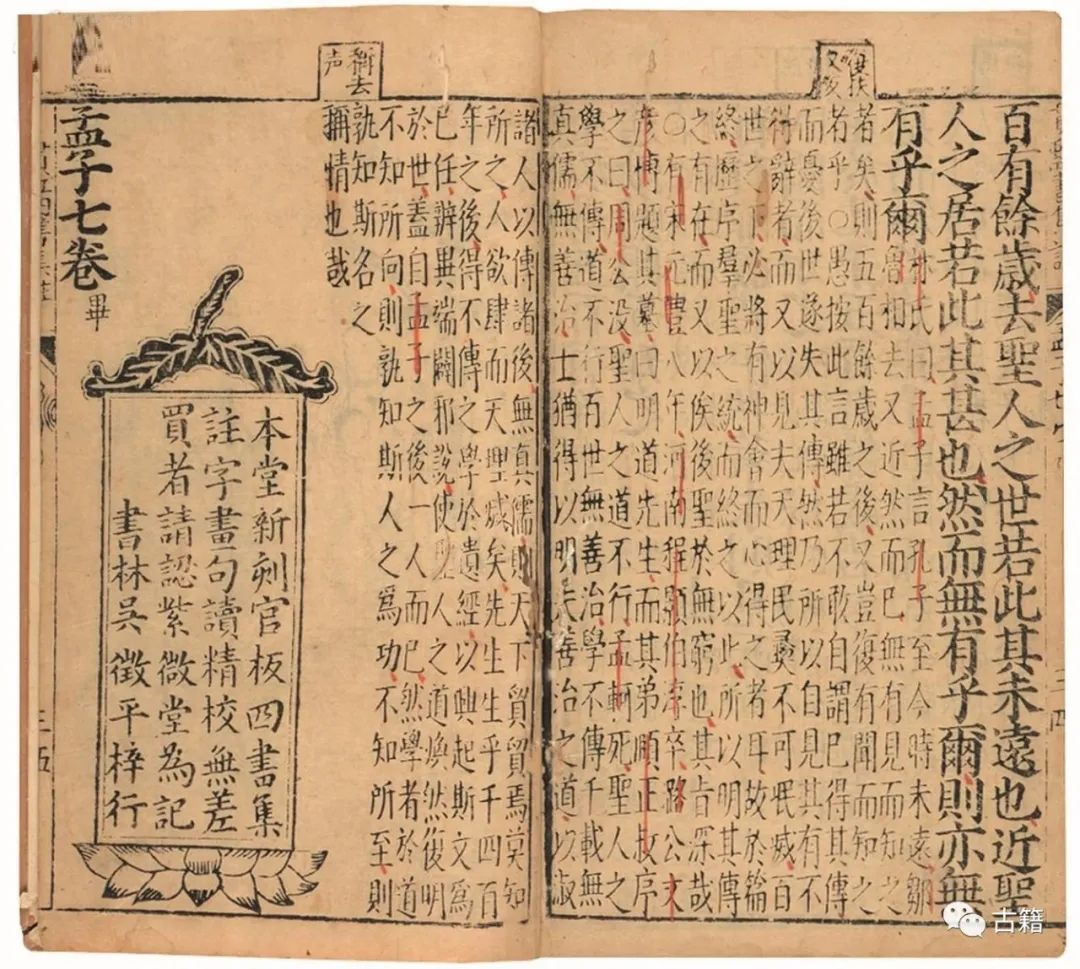 百有餘歲去聖人之世若此其未遠也近聖
人之居若此其甚也然而無有乎爾則亦無
有乎爾
林氏曰孟子言孔子至今時未遠鄒
魯相去又近然而已無有見而知之
者矣則五百餘歲之後又豈復有聞而知之
者乎○愚按此言雖若不敢自謂已得其傳
而憂後世遂失其傳然乃所以自見其有不
得辭者而又以見夫天理民彝不可泯滅百
世之下必將有神會而心得之者耳故於篇
終歷序羣聖之統而終之以此所以明其傳
之有在而又以俟後聖於無窮也其旨深哉
○有宋元豐八年河南程顥伯淳卒路公文
彥博題其墓曰明道先生而其弟頤正叔序
之曰周公沒聖人之道不行孟軻死聖人之
學不傳道不行百世無善治學不傳千載無
真儒無善治士猶得以明夫善治之道以淑
諸人以傳諸後無真儒則天下貿貿焉莫知
所之人欲肆而天理滅矣先生生乎千四百
年之後得不傳之學於遺經以興起斯文為
已任辨異端闢邪說使聖人之道煥然復明
於世蓋自孟子之後一人而已然學者於道
不知所向則孰知斯人之為功不知所至則
孰知斯名之
稱情也哉
稱去
声
本堂新刻官板四書集
註字畫句讀精校無差
買者請認紫微堂為記
書林吳徵平梓行
孟子七卷畢
三五
古籍